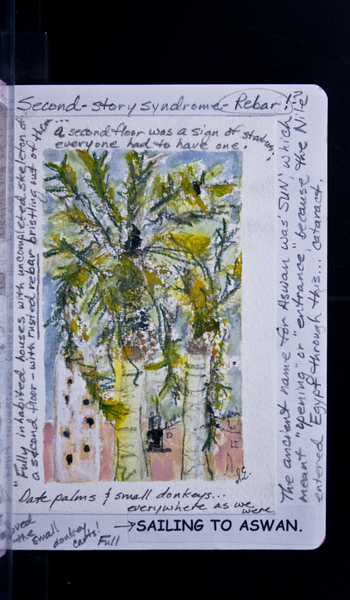 Second-story syndrome-Rebar!
a second floor was a sign of status:
everyone had to have one.
"Fully inhabited houses with uncompleted skeleton of
a second floor - with rusted rebar bristling out of them...
The ancient name for Aswan was 'SUN', which
meant "opening" or "entrance" because the Nile
entered Egypt through this... cataract.
Date palms & small donkeys...
everywhere as we were
→SAILING TO ASWAN.
the small donkey
carts! Full